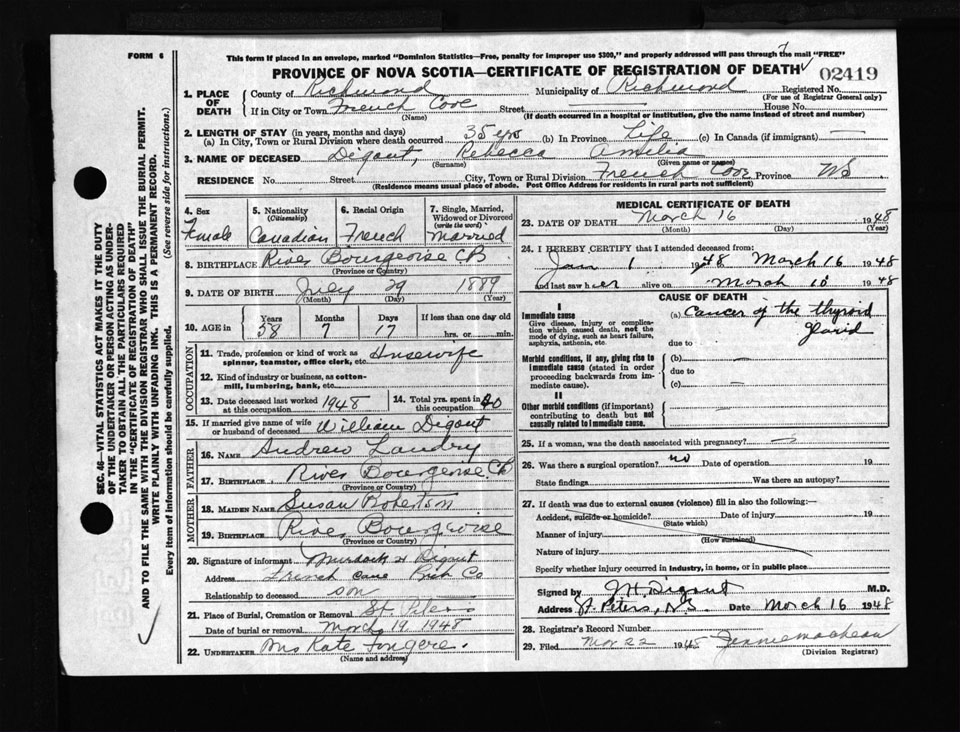 FORM 6
This form if placed in an envelope, marked "Dominion Statistics—Free, penalty for improper use $300," and properly addressed will pass through the mail "FREE"
PROVINCE OF NOVA SCOTIA—CERTIFICATE OF REGISTRATION OF DEATH
02419
SEC. 46—VITAL STATISTICS ACT MAKES IT THE DUTY
OF THE UNDERTAKER OR PERSON ACTING AS UNDER-
TAKER TO OBTAIN ALL THE PARTICULARS REQUIRED
IN THE "CERTIFICATE OF REGISTRATION OF DEATH"
AND TO FILE THE SAME WITH THE DIVISION REGISTRAR WHO SHALL ISSUE THE BURIAL PERMIT.
WRITE PLAINLY WITH UNFADING INK. THIS IS A PERMANENT RECORD.
Every item of information should be carefully supplied. (See reverse side for instructions.)
1. PLACE OF DEATH
County of Richmond Municipality of Richmond Registered No.
(For use of Registrar General only)
If in City or Town French Cove Street House No.
(Name) (If death occurred in a hospital or institution, give the name instead of street and number)
2. LENGTH OF STAY (in years, months and days)
(a) In City, Town or Rural Division where death occurred 35 yrs (b) In Province Life (c) In Canada (if immigrant) —
3. NAME OF DECEASED Digout, Rebecca Amelia
(Surname) (Given name or names)
RESIDENCE No. Street City, Town or Rural Division French Cove Province NS
(Residence means usual place of abode. Post Office Address for residents in rural parts not sufficient)
4. Sex Female
5. Nationality (Citizenship) Canadian
6. Racial Origin French
7. Single, Married, Widowed or Divorced (write the word) Married
8. BIRTHPLACE River Bourgeoise CB
(Province or Country)
9. DATE OF BIRTH July 29 1889
(Month) (Day) (Year)
10. AGE in Years 58 Months 7 Days 17 If less than one day old hrs. or min.
OCCUPATION
11. Trade, profession or kind of work as spinner, teamster, office clerk, etc. Housewife
12. Kind of industry or business, as cotton-mill, lumbering, bank, etc.
13. Date deceased last worked at this occupation 1948
14. Total yrs. spent in this occupation 40
15. If married give name of wife or husband of deceased William Digout
FATHER
16. NAME Andrew Landry
17. BIRTHPLACE River Bourgeoise CB
(Province or Country)
MOTHER
18. MAIDEN NAME Susan Robertson
19. BIRTHPLACE River Bourgeoise
(Province or Country)
20. Signature of informant Murdock H Digout
Address French Cove Rich Co
Relationship to deceased son
21. Place of Burial, Cremation or Removal St Peters
Date of burial or removal March 19 1948
22. UNDERTAKER Mrs Kate Fougere.
(Name and address)
MEDICAL CERTIFICATE OF DEATH
23. DATE OF DEATH March 16 1948
(Month) (Day) (Year)
24. I HEREBY CERTIFY that I attended deceased from:
Jan 1 1948 March 16 1948
and last saw her alive on March 10 1948
CAUSE OF DEATH
I
Immediate cause
Give disease, injury or complication which caused death, not the mode of dying, such as heart failure, asphyxia, asthenia, etc.
(a) Cancer of the thyroid
gland
due to
Morbid conditions, if any, giving rise to immediate cause (stated in order proceeding backwards from immediate cause).
(b) —
due to
(c) —
II
Other morbid conditions (if important) contributing to death but not causally related to immediate cause.
25. If a woman, was the death associated with pregnancy?
26. Was there a surgical operation? no Date of operation 19
State findings Was there an autopsy?
27. If death was due to external causes (violence) fill in also the following:—
Accident, suicide or homicide? Date of injury 19
(State which)
Manner of injury
(How sustained)
Nature of injury
Specify whether injury occurred in industry, in home, or in public place
Signed by J.H. Digout M.D.
Address St. Peters, N.S. Date March 16 1948
28. Registrar's Record Number
29. Filed Mar 22 194
(Division Registrar)